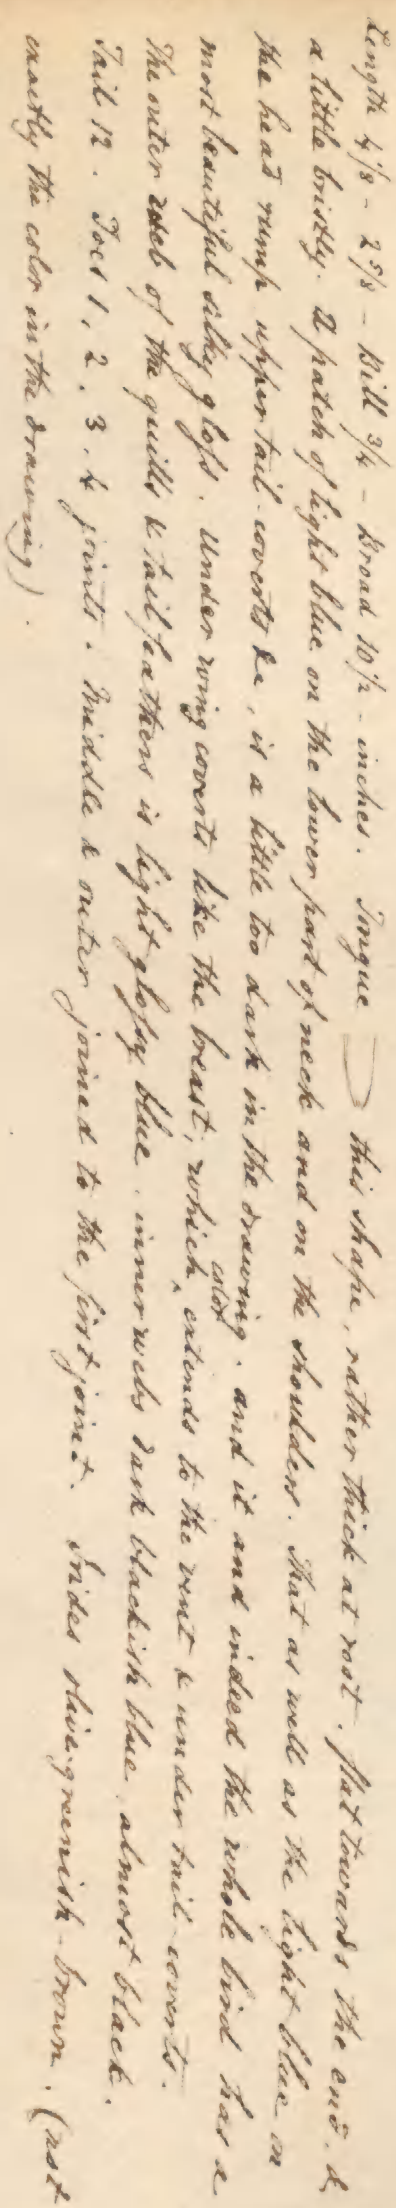 Length 4 7/8 - 2 5/8 - Bill 3/4 - Broad 10 1/2 - inches. Tongue this shape, rather thick at root, flat towards the end, &
a little bristly. A patch of light blue on the lower part of neck and on the shoulders. That as well as the light blue on
the head rump upper tail-coverts &c, is a little too dark in the drawing. and it and indeed the whole bird has a
most beautiful silky gloss. Under wing coverts like the breast, which color extends to the vent & under tail-coverts.
The outer web of the quills & tail feathers is light glossy blue, inner webs dark blackish blue, almost black.
Tail 12. Toes 1, 2, 3, 4 joints. Middle & outer joined to the first joint. Irides olive-greenish-brown. (not
exactly the color in the drawing).